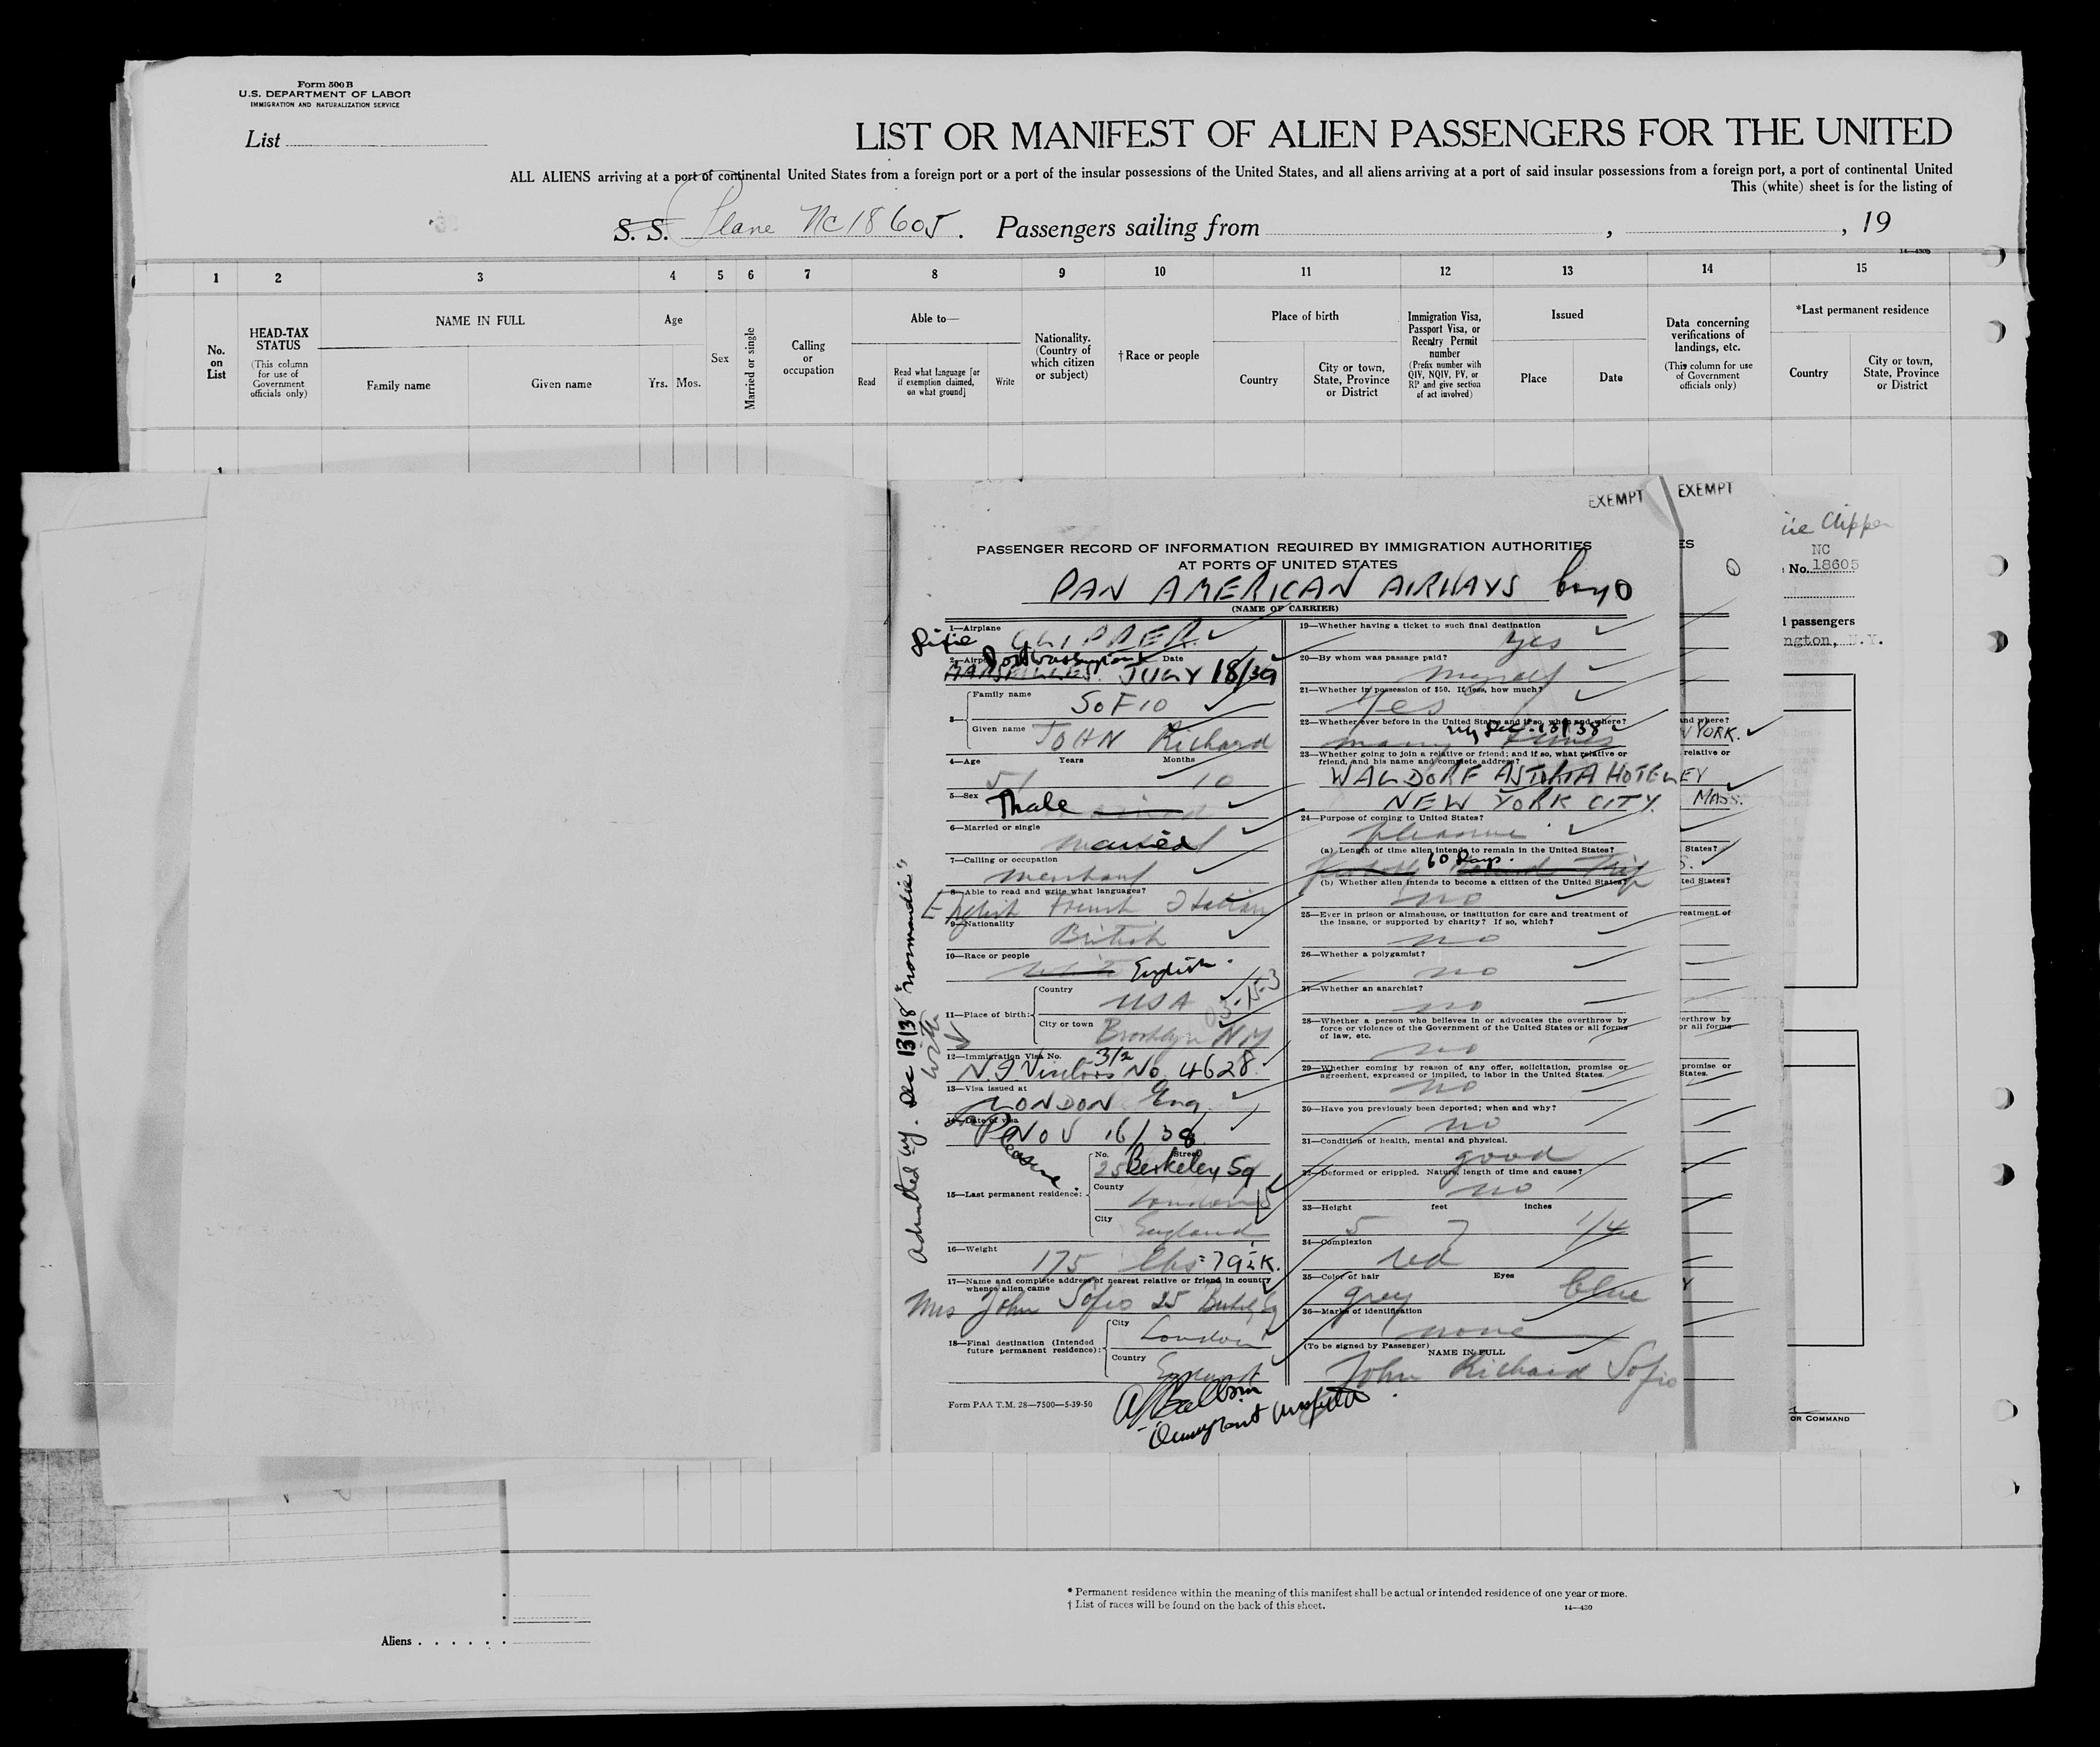 Form 500 B
U.S. DEPARTMENT OF LABOR
IMMIGRATION AND NATURALIZATION SERVICE
List
LIST OR MANIFEST OF ALIEN PASSENGERS FOR THE UNITED
ALL ALIENS arriving at a port of continental United States from a foreign port or a port of the insular possessions of the United States, and all aliens arriving at a port of said insular possessions from a foreign port, a port of continental United
This (white) sheet is for the listing of
S. S. Plane NC 18605. Passengers sailing from , , 19
14—430
1 2 3 4 5 6 7 8 9 10 11 12 13 14 15
No. on List
HEAD-TAX STATUS
(This column for use of Government officials only)
NAME IN FULL
Family name
Given name
Age
Yrs. Mos.
Sex
Married or single
Calling or occupation
Able to—
Read
Read what language [or if exemption claimed, on what ground]
Write
Nationality. (Country of which citizen or subject)
† Race or people
Place of birth
Country
City or town, State, Province or District
Immigration Visa, Passport Visa, or Reentry Permit number
(Prefix number with QIV, NQIV, PV, or RP and give section of act involved)
Issued
Place
Date
Data concerning verifications of landings, etc.
(This column for use of Government officials only)
*Last permanent residence
Country
City or town, State, Province or District
1
EXEMPT
PASSENGER RECORD OF INFORMATION REQUIRED BY IMMIGRATION AUTHORITIES
AT PORTS OF UNITED STATES
PAN AMERICAN AIRWAYS
(NAME OF CARRIER)
1—Airplane
CLIPPER
2—Airport Port Washington Date
MARSEILLES. JULY 18/39
3—
Family name
SOFIO
Given name JOHN Richard
4—Age Years Months
51 10
5—Sex Male
6—Married or single
married
7—Calling or occupation
merchant
8—Able to read and write what languages?
English French Italian
9—Nationality
British
10—Race or people
White English.
11—Place of birth:
Country
USA
City or town Brooklyn NY
12—Immigration Visa No.
3/2
N.I Visitors No 4628
13—Visa issued at
LONDON Eng.
14—Date of visa
NOV 16/38
Pleasure
15—Last permanent residence:
No. Street
25 Berkeley Sq
County
London
City
England
16—Weight
175 lbs = 79½K.
17—Name and complete address of nearest relative or friend in country whence alien came
Mrs John Sofio 25 Berkeley Sq
18—Final destination (Intended future permanent residence):
City
London
Country
England
Form PAA T.M. 28—7500—5-39-50
Immigrant Inspector
Admitted ny. Dec 13/38 "normandie"
with
19—Whether having a ticket to such final destination
yes
20—By whom was passage paid?
myself
21—Whether in possession of $50. If less, how much?
Yes
22—Whether ever before in the United States and if so, when and where?
ny Dec. 13/38
many times
23—Whether going to join a relative or friend; and if so, what relative or friend, and his name and complete address?
WALDORF ASTORIA HOTEL
NEW YORK CITY.
24—Purpose of coming to United States?
pleasure
(a) Length of time alien intends to remain in the United States?
60 Days.
(b) Whether alien intends to become a citizen of the United States?
no
25—Ever in prison or almshouse, or institution for care and treatment of the insane, or supported by charity? If so, which?
no
26—Whether a polygamist?
no
27—Whether an anarchist?
no
28—Whether a person who believes in or advocates the overthrow by force or violence of the Government of the United States or all forms of law, etc.
no
29—Whether coming by reason of any offer, solicitation, promise or agreement, expressed or implied, to labor in the United States.
no
30—Have you previously been deported; when and why?
no
31—Condition of health, mental and physical.
good
32—Deformed or crippled. Nature, length of time and cause?
no
33—Height feet inches
5 7 1/4
34—Complexion
red
35—Color of hair Eyes
grey blue
36—Marks of identification
none
(To be signed by Passenger)
NAME IN FULL
John Richard Sofio
EXEMPT
ES
nd where?
YORK.
relative or
EY
MASS.
States?
S.
ted States?
reatment of
erthrow by
or all forms
promise or
States.
Y
Clipper
NC
No. 18605
passengers
ngton, N.Y.
OR COMMAND
* Permanent residence within the meaning of this manifest shall be actual or intended residence of one year or more.
† List of races will be found on the back of this sheet.
14—430
Aliens . . . . . .